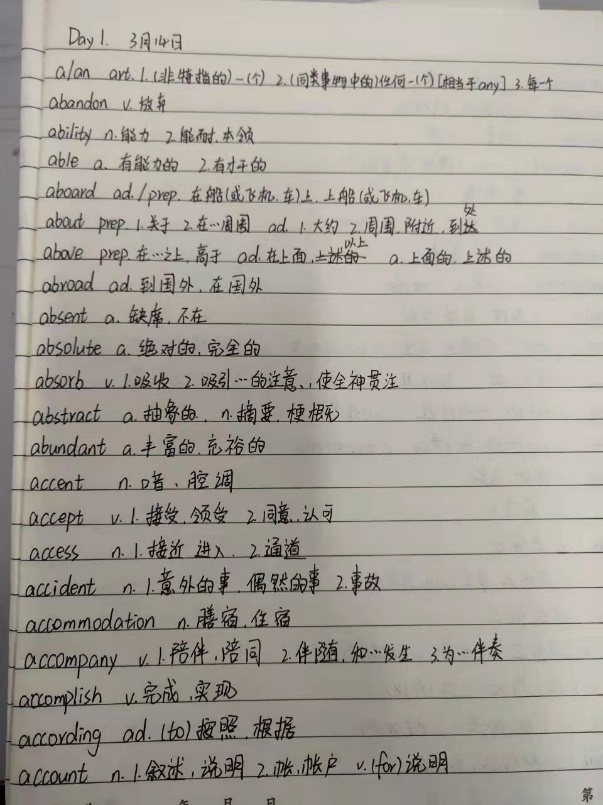 Day 1. 3月14日
a/an art. 1.(非特指的)一(个) 2.(同类事物中的)任何一(个) [相当于any] 3.每一个
abandon v. 放弃
ability n. 能力 2.能耐.本领
able a. 有能力的 2.有才干的
aboard ad./prep. 在船(或飞机,车)上.上船(或飞机,车)
about prep. 1.关于 2.在…周围 ad. 1.大约 2.周围.附近,到处
above prep. 在…之上,高于 ad.在上面,以上 a.上面的.上述的
abroad ad. 到国外,在国外
absent a. 缺席,不在
absolute a. 绝对的,完全的
absorb v. 1.吸收 2.吸引…的注意、使全神贯注
abstract a. 抽象的, n.摘要.梗概
abundant a. 丰富的.充裕的
accent n. 口音、腔调
accept v. 1.接受,领受 2.同意.认可
access n. 1.接近 进入 2.通道
accident n. 1.意外的事,偶然的事 2.事故
accommodation n. 膳宿,住宿
accompany v. 1.陪伴,陪同 2.伴随,和…发生 3.为…伴奏
accomplish v. 完成,实现
according ad. (to) 按照.根据
account n. 1.叙述,说明 2.帐,帐户 v.(for)说明
年 月 日 第